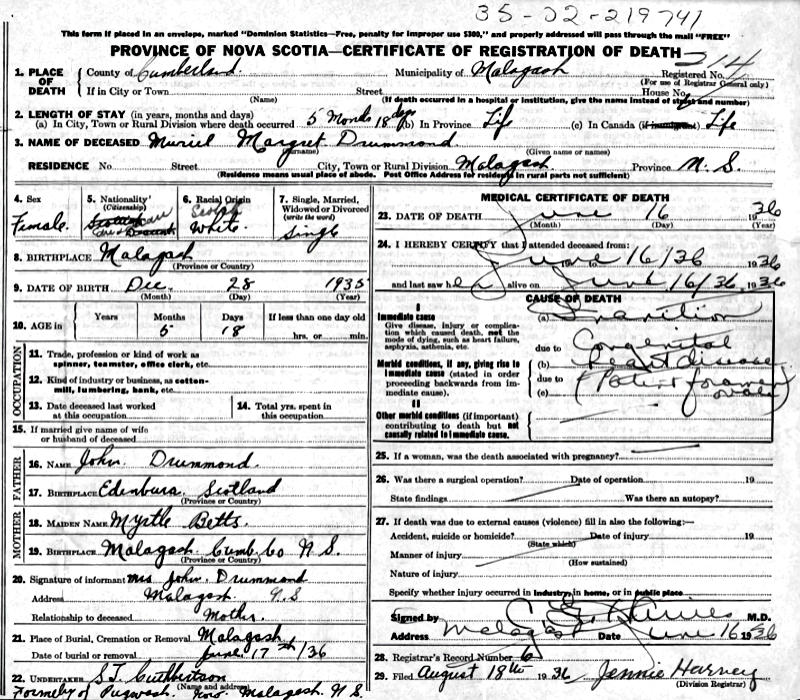 35-02-219741
This form if placed in an envelope, marked "Dominion Statistics—Free, penalty for improper use $300," and properly addressed will pass through the mail "FREE"
PROVINCE OF NOVA SCOTIA—CERTIFICATE OF REGISTRATION OF DEATH
1. PLACE OF DEATH County of Cumberland Municipality of Malagash Registered No.
(For use of Registrar General only)
If in City or Town Street House No.
(Name) (If death occurred in a hospital or institution, give the name instead of street and number)
2. LENGTH OF STAY (in years, months and days)
(a) In City, Town or Rural Division where death occurred 5 Months 18 days (b) In Province Life (c) In Canada (if immigrant) Life
3. NAME OF DECEASED Muriel Margret Drummond
(Surname) (Given name or names)
RESIDENCE No. Street City, Town or Rural Division Malagash Province N. S.
(Residence means usual place of abode. Post Office Address for residents in rural parts not sufficient)
4. Sex
Female.
5. Nationality
(Citizenship)
6. Racial Origin
Scotch
White
7. Single, Married, Widowed or Divorced
(write the word)
Single
8. BIRTHPLACE Malagash
(Province or Country)
9. DATE OF BIRTH Dec 28 1935
(Month) (Day) (Year)
10. AGE in Years Months Days If less than one day old
5 18 hrs. or min.
OCCUPATION
11. Trade, profession or kind of work as spinner, teamster, office clerk, etc.
12. Kind of industry or business, as cotton-mill, lumbering, bank, etc.
13. Date deceased last worked at this occupation
14. Total yrs. spent in this occupation
15. If married give name of wife or husband of deceased
FATHER
16. NAME John Drummond.
17. BIRTHPLACE Edenburg Scotland
(Province or Country)
MOTHER
18. MAIDEN NAME Myrtle Betts
19. BIRTHPLACE Malagash Cumb Co N S.
(Province or Country)
20. Signature of informant Mrs John Drummond
Address Malagash N.S
Relationship to deceased Mother.
21. Place of Burial, Cremation or Removal Malagash
Date of burial or removal June 17th/36
22. UNDERTAKER S.T. Cuthbertson
(Name and address)
Formely of Pugwash now Malagash N.S.
MEDICAL CERTIFICATE OF DEATH
23. DATE OF DEATH June 16 1936
(Month) (Day) (Year)
24. I HEREBY CERTIFY that I attended deceased from:
June 16/36 to 1936
and last saw her alive on June 16/36, 1936
CAUSE OF DEATH
I
Immediate cause
Give disease, injury or complication which caused death, not the mode of dying, such as heart failure, asphyxia, asthenia, etc.
(a) Inanition
due to Congenital
Morbid conditions, if any, giving rise to immediate cause (stated in order proceeding backwards from immediate cause).
(b) heart disease
due to
(c) (Patent foramen ovale)
II
Other morbid conditions (if important) contributing to death but not causally related to immediate cause.
25. If a woman, was the death associated with pregnancy?
26. Was there a surgical operation? Date of operation 19
State findings Was there an autopsy?
27. If death was due to external causes (violence) fill in also the following:—
Accident, suicide or homicide? Date of injury 19
(State which)
Manner of injury
(How sustained)
Nature of injury
Specify whether injury occurred in industry, in home, or in public place
Signed by M.D.
Address Malagash Date June 16 1936
28. Registrar's Record Number 6
29. Filed August 18th 1936 Jennie Harvey
(Division Registrar)